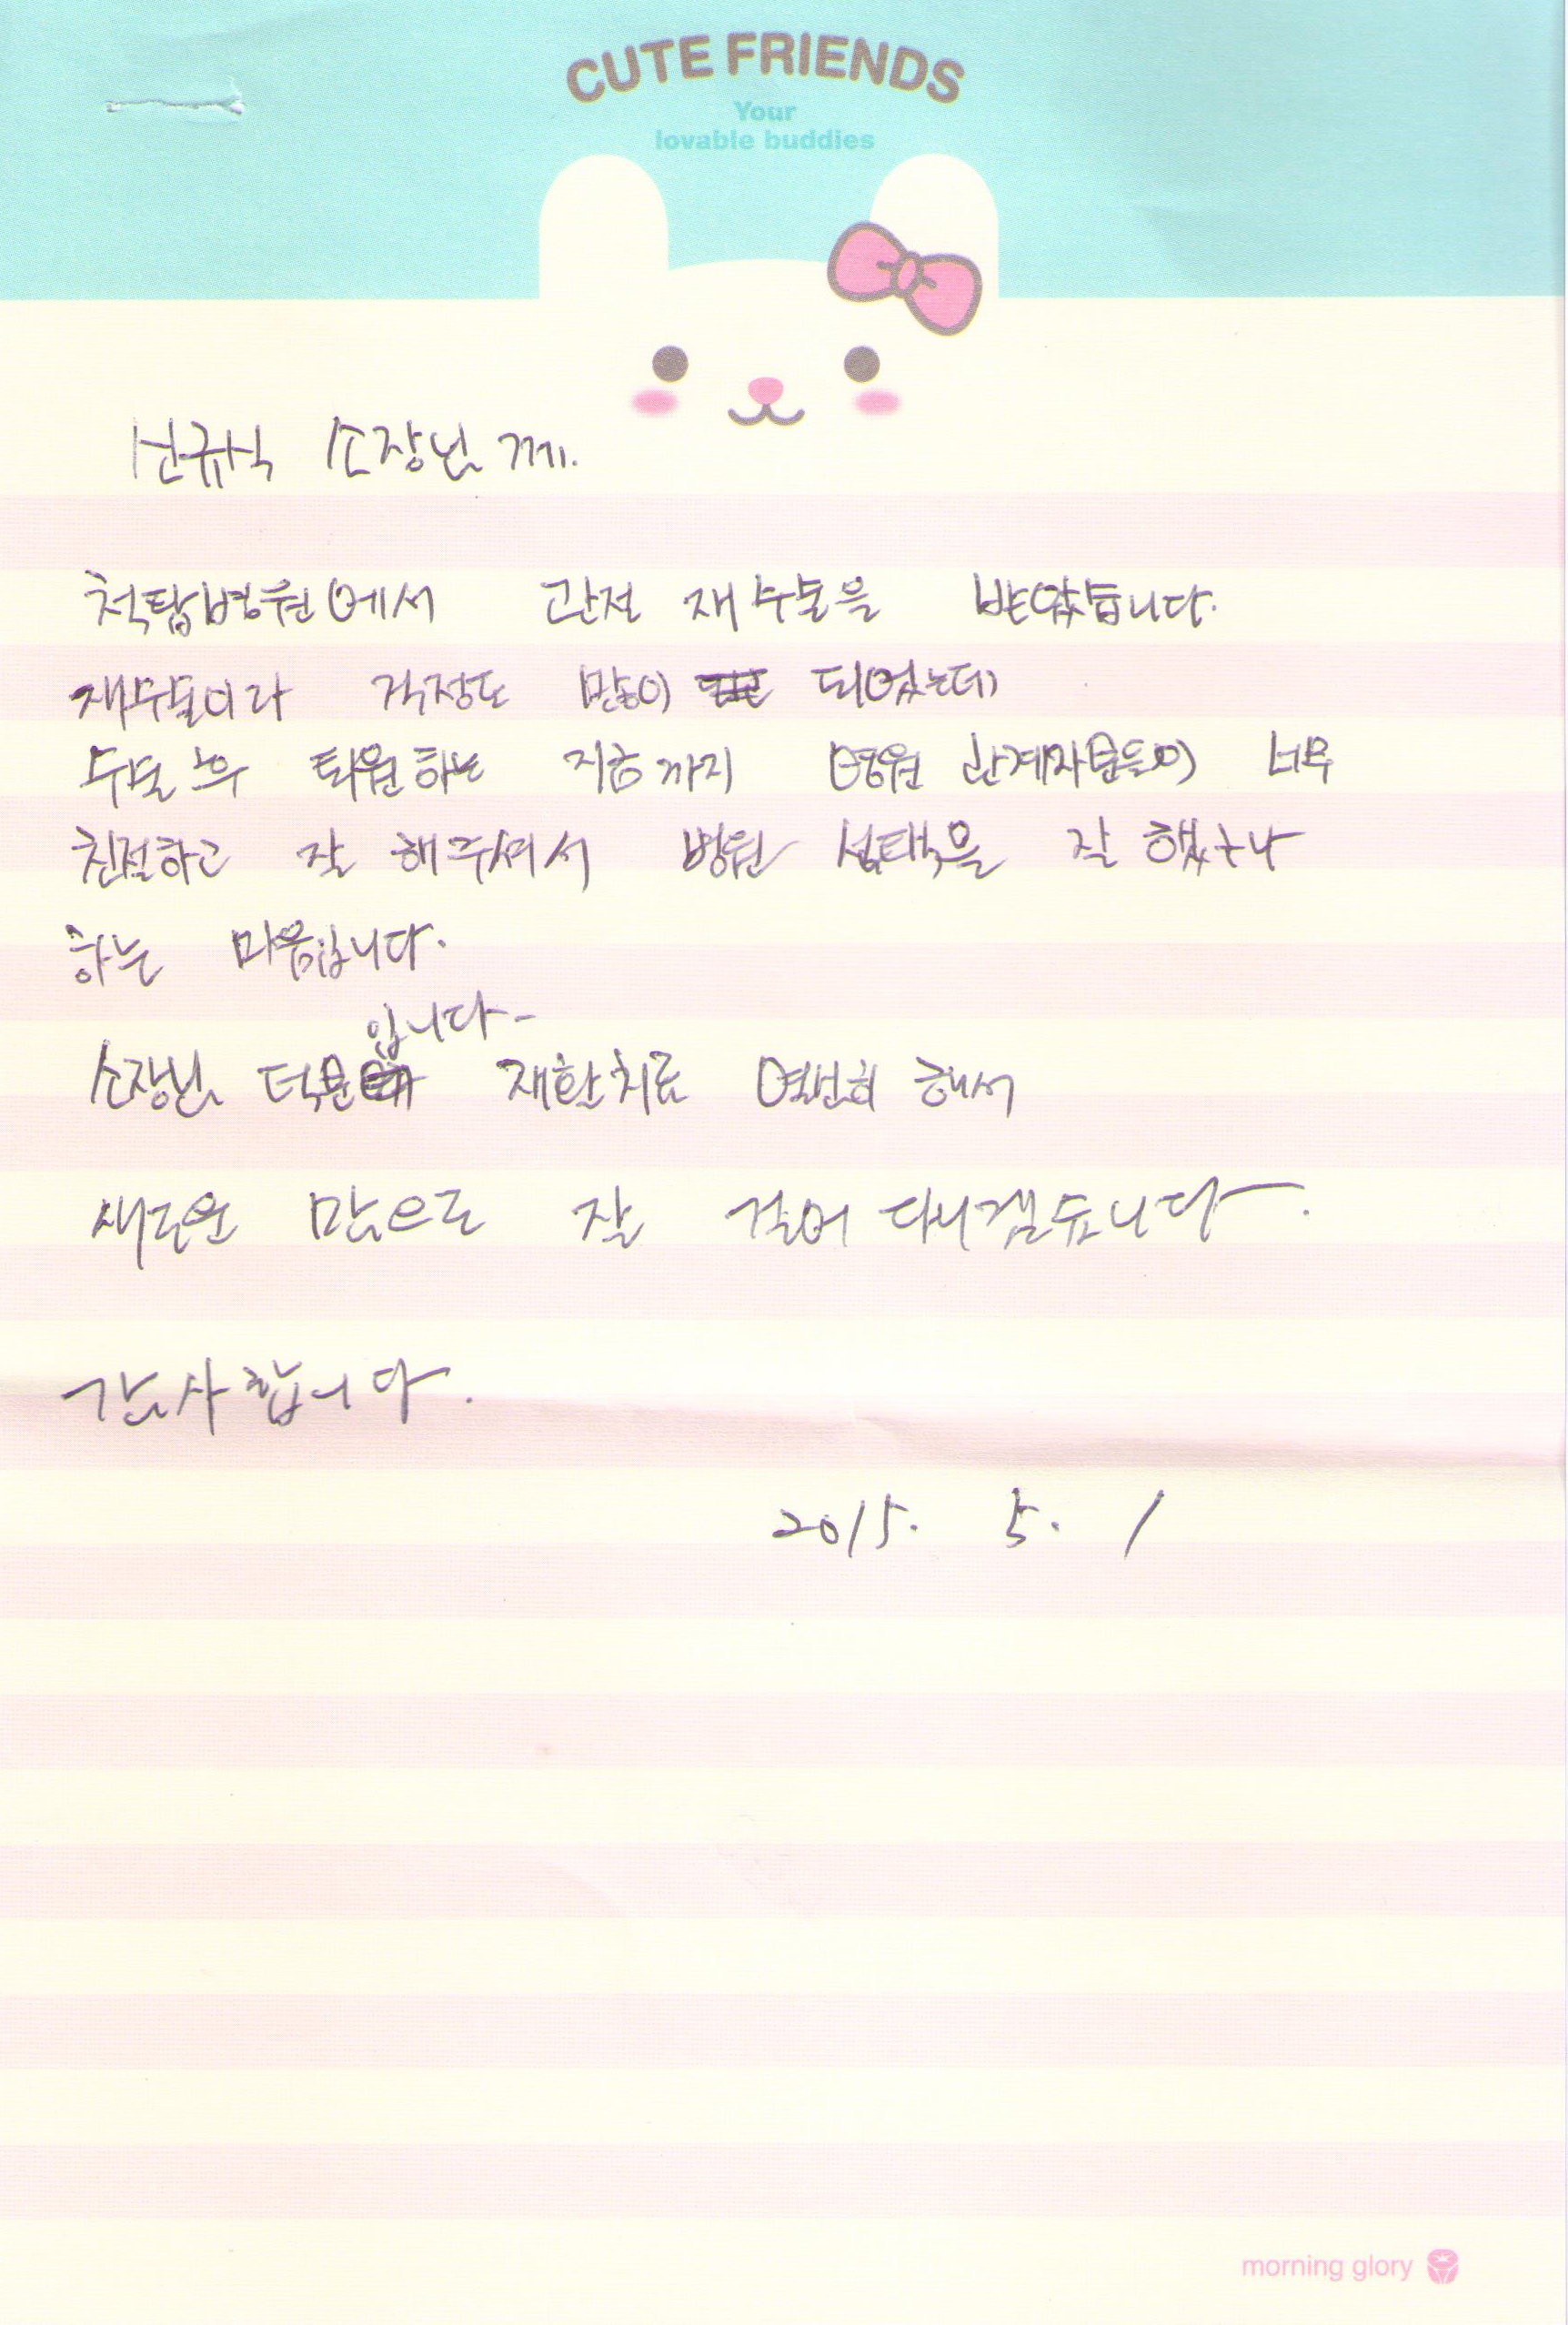 CUTE FRIENDS
Your
lovable buddies
신규식 소장님께.
척탑병원에서 관절 재수술을 받았습니다.
재수술이라 걱정도 많이 되었는데
수술 후 퇴원하는 지금까지 병원 관계자분들이 너무
친절하고 잘 해주셔서 병원 선택을 잘 했구나
하는 마음입니다.
입니다-
소장님 덕분 재활치료 열번히 해서
새로운 맘으로 잘 걸어 다니겠습니다.
감사합니다.
2015. 5. 1
morning glory